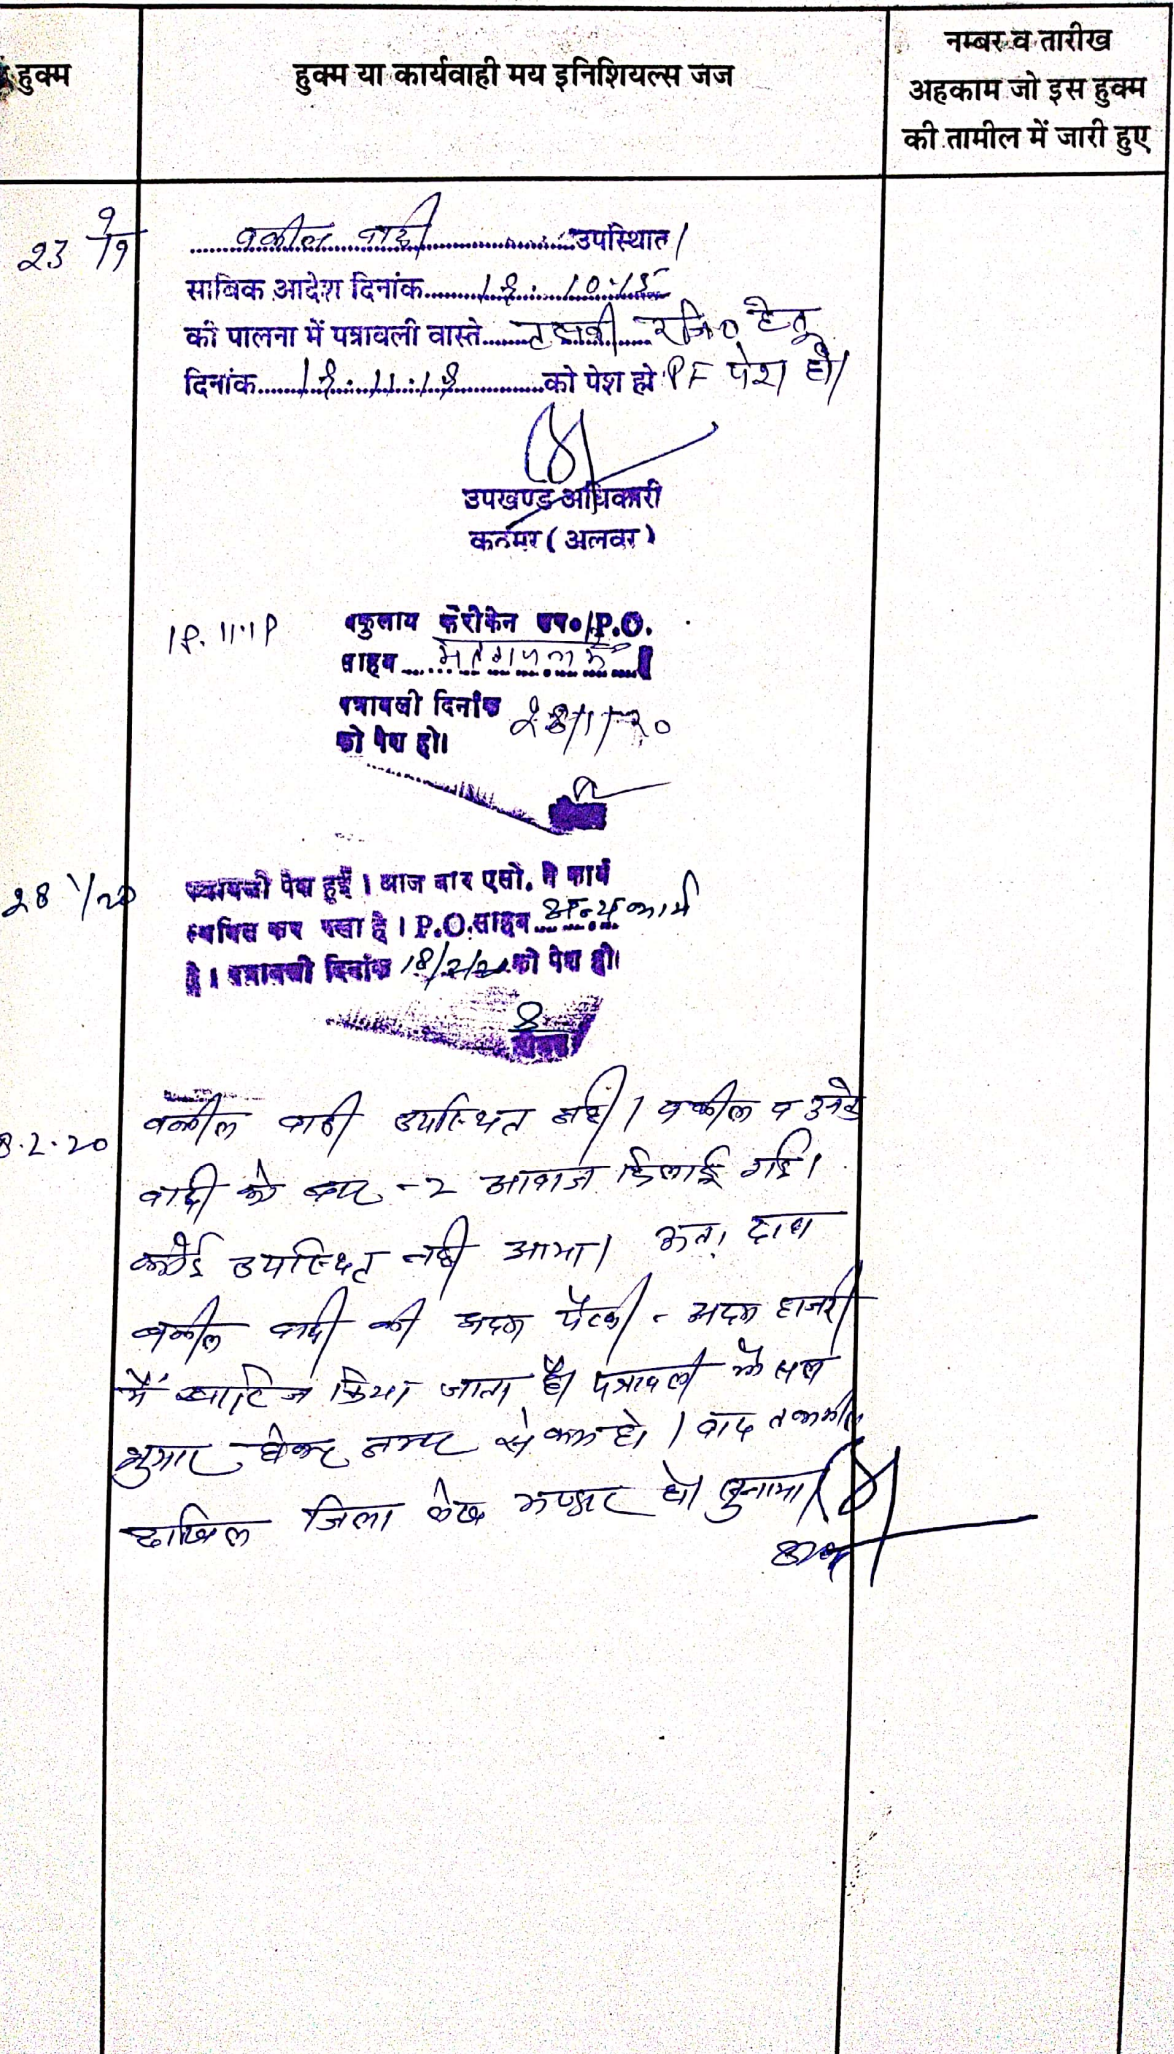 हुक्म
हुक्म या कार्यवाही मय इनिशियल्स जज
नम्बर व तारीख
अहकाम जो इस हुक्म
की तामील में जारी हुए
23 9/19
वकील वादी उपस्थित।
साबिक आदेश दिनांक
की पालना में पत्रावली वास्ते तलबी रजि० हेतू
दिनांक को पेश हो PF पेश हो।
उपखण्ड अधिकारी
कठूमर (अलवर)
वकुलाय फेरीकेन उप० P.O.
साहब
पत्रावली दिनांक 28/1/20
को पेश हो।
28 1/20
पत्रावली पेश हुई। आज बार एसो. ने कार्य
स्थगित कर रखा है। P.O. साहब अन्य कार्य
है। पत्रावली दिनांक 18/2/20 को पेश हो।
8.2.20
वकील वादी उपस्थित नहीं। वकील व उनके
वादी को बार-2 आवाज दिलाई गई।
कोई उपस्थित नहीं आया। अतः दावा
वकील वादी की अदम पैरवी - अदम हाजरी
में खारिज किया जाता है। पत्रावली फैसल
शुमार होकर नम्बर से कम हो। बाद तकमील
दाखिल जिला लेख भण्डार हो। सुनाया